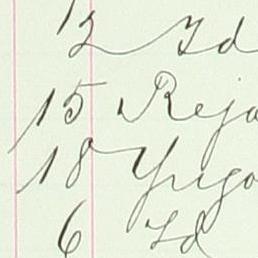 12 Id
15 Reja
18 Yugo
6 Id